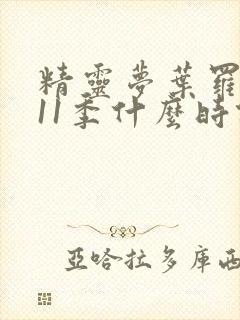 精靈夢葉羅
11季什麼時
亞哈拉多庫西